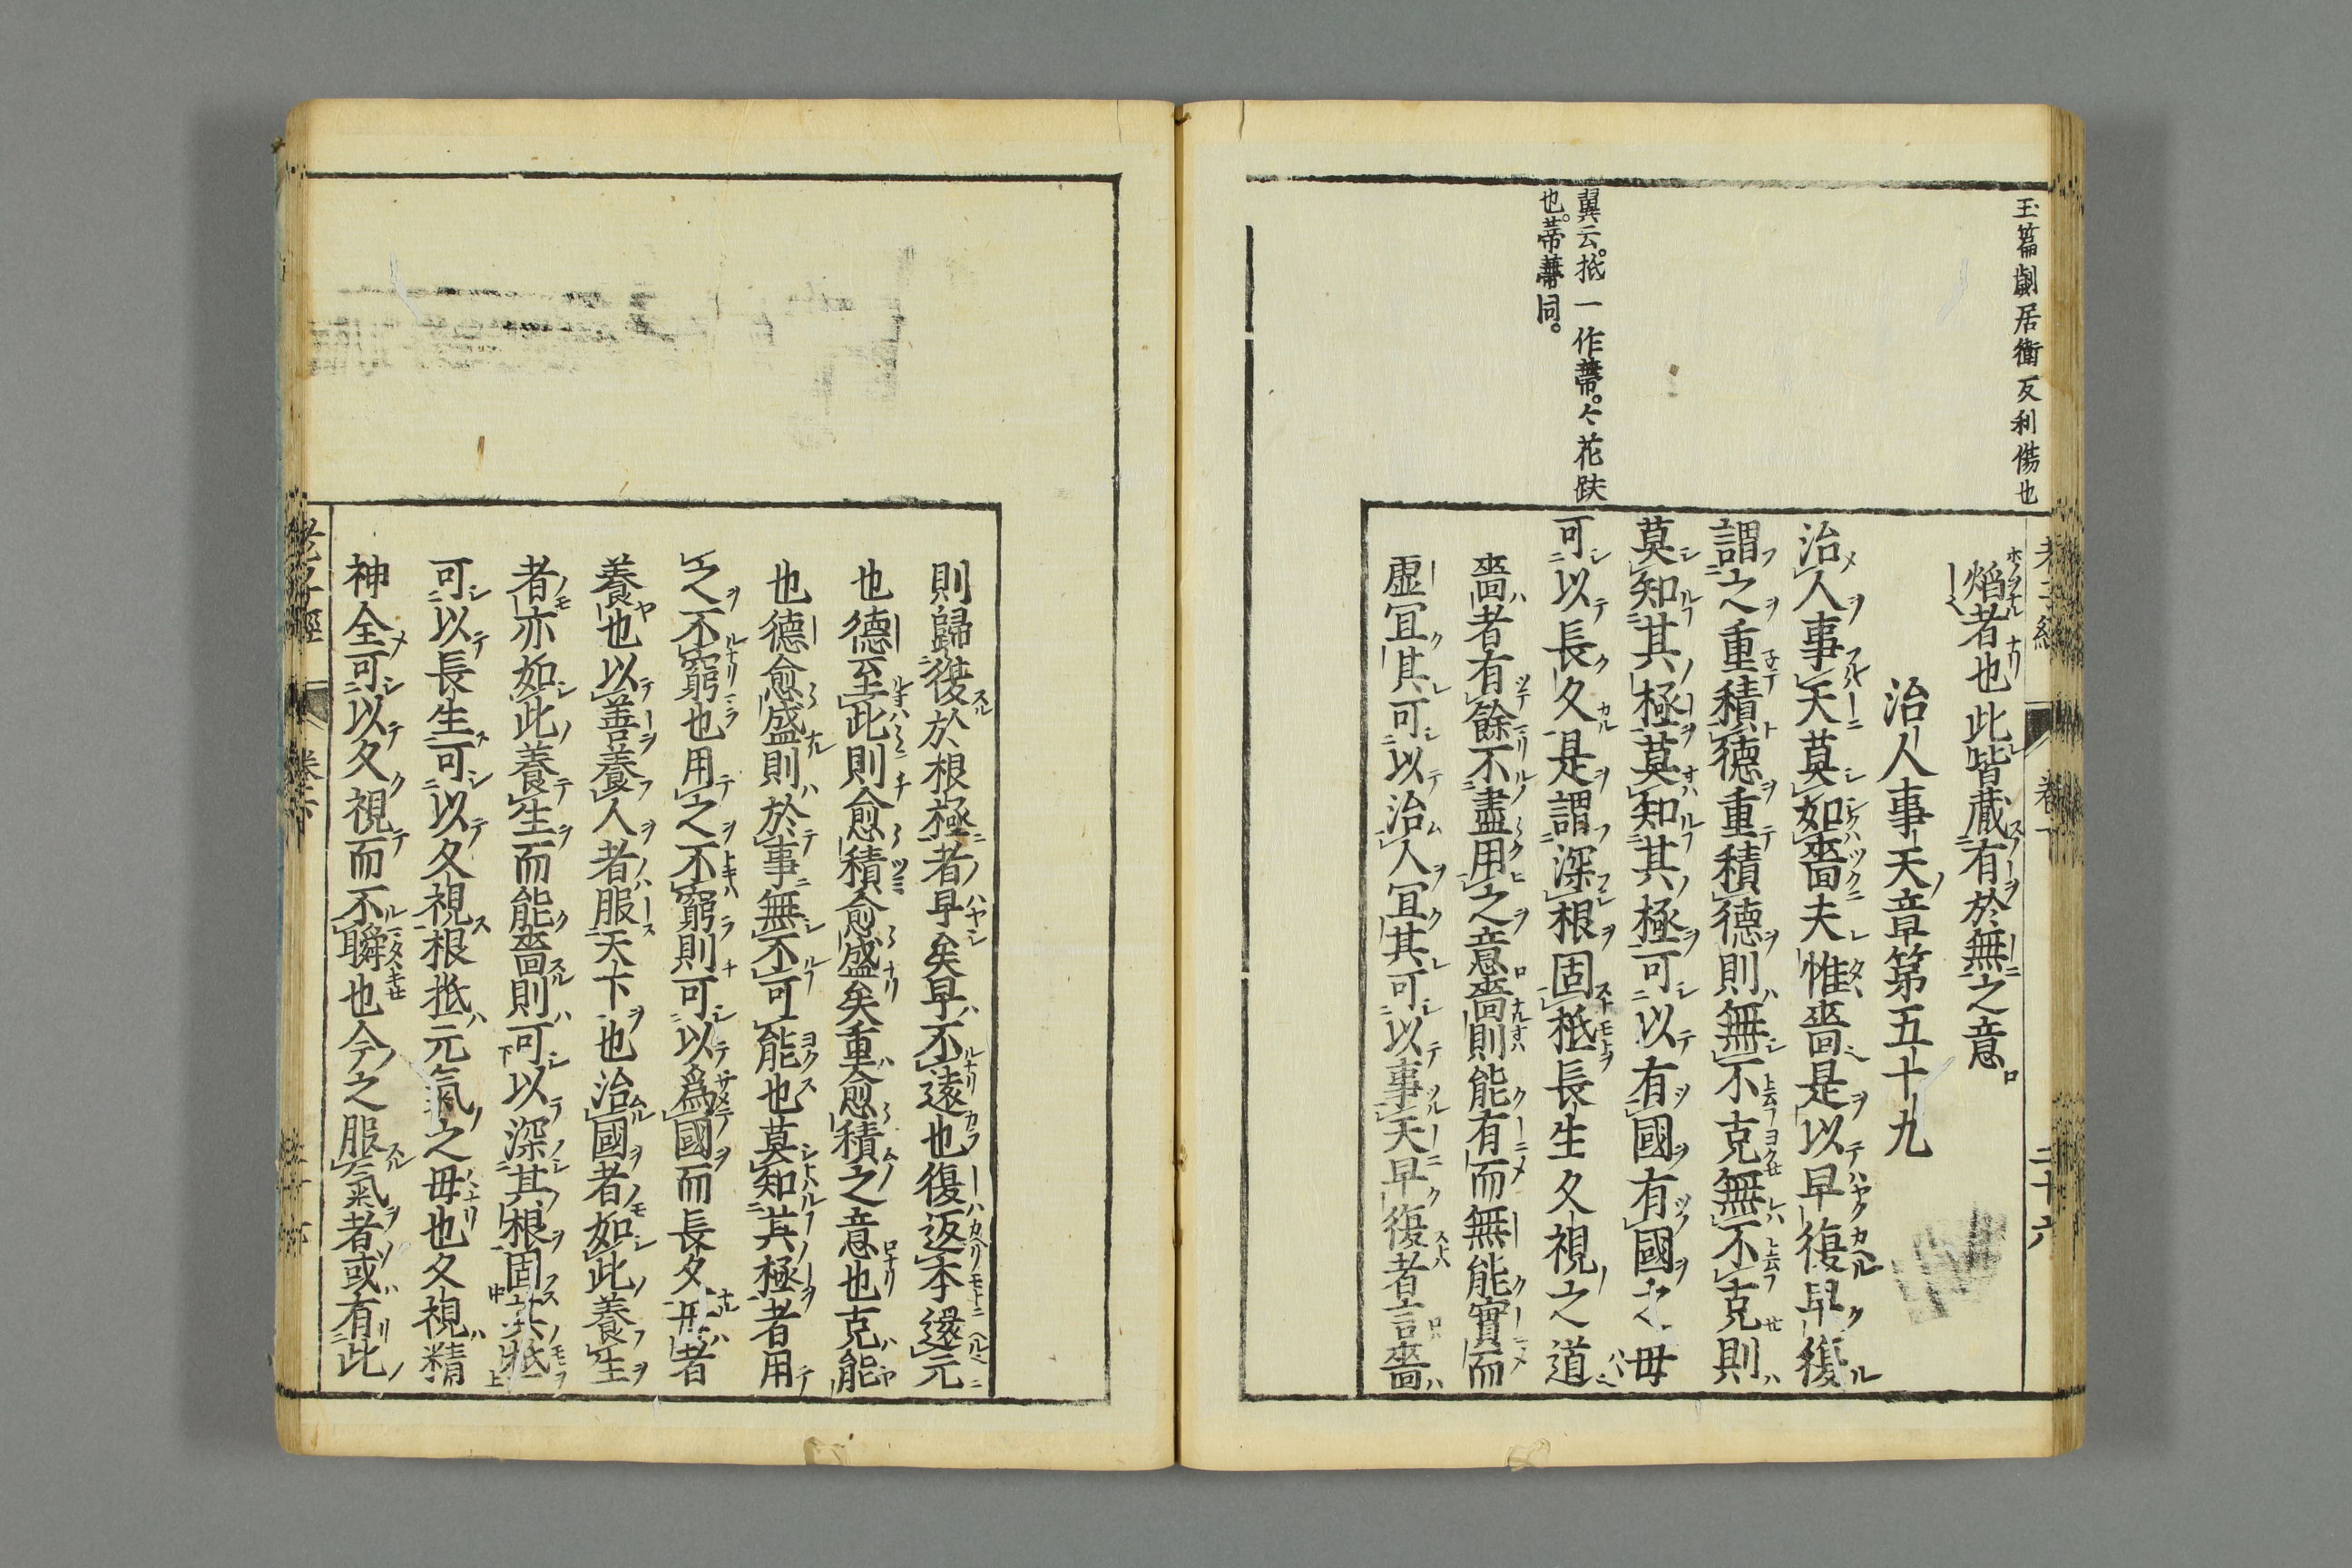 玉篇劌居衞反利傷也
焰者也此皆藏有於無之意
治人事天章第五十九
治人事天莫如嗇夫惟嗇是以早復早復
謂之重積德重積德則無不克無不克則
莫知其極莫知其極可以有國有國之母
翼云。抵一作蔕。仝花趺
也。蒂蔕同。
可以長久是謂深根固柢長生久視之道
嗇者有餘不盡用之意嗇則能有而無能實而
虛冝其可以治人冝其可以事天早復者言嗇
則歸復於根極者早矣早不遠也復返本還元
也德至此則愈積愈盛矣重愈積之意也克能
也德愈盛則於事無不可能也莫知其極者用
之不窮也用之不窮則可以爲國而長久母者
養也以善養人者服天下也治國者如此養生
者亦如此養生而能嗇則可以深其根固其柢
可以長生可以久視根抵元氣之母也久視精
神全可以久視而不瞬也今之服氣者或有此
老子經